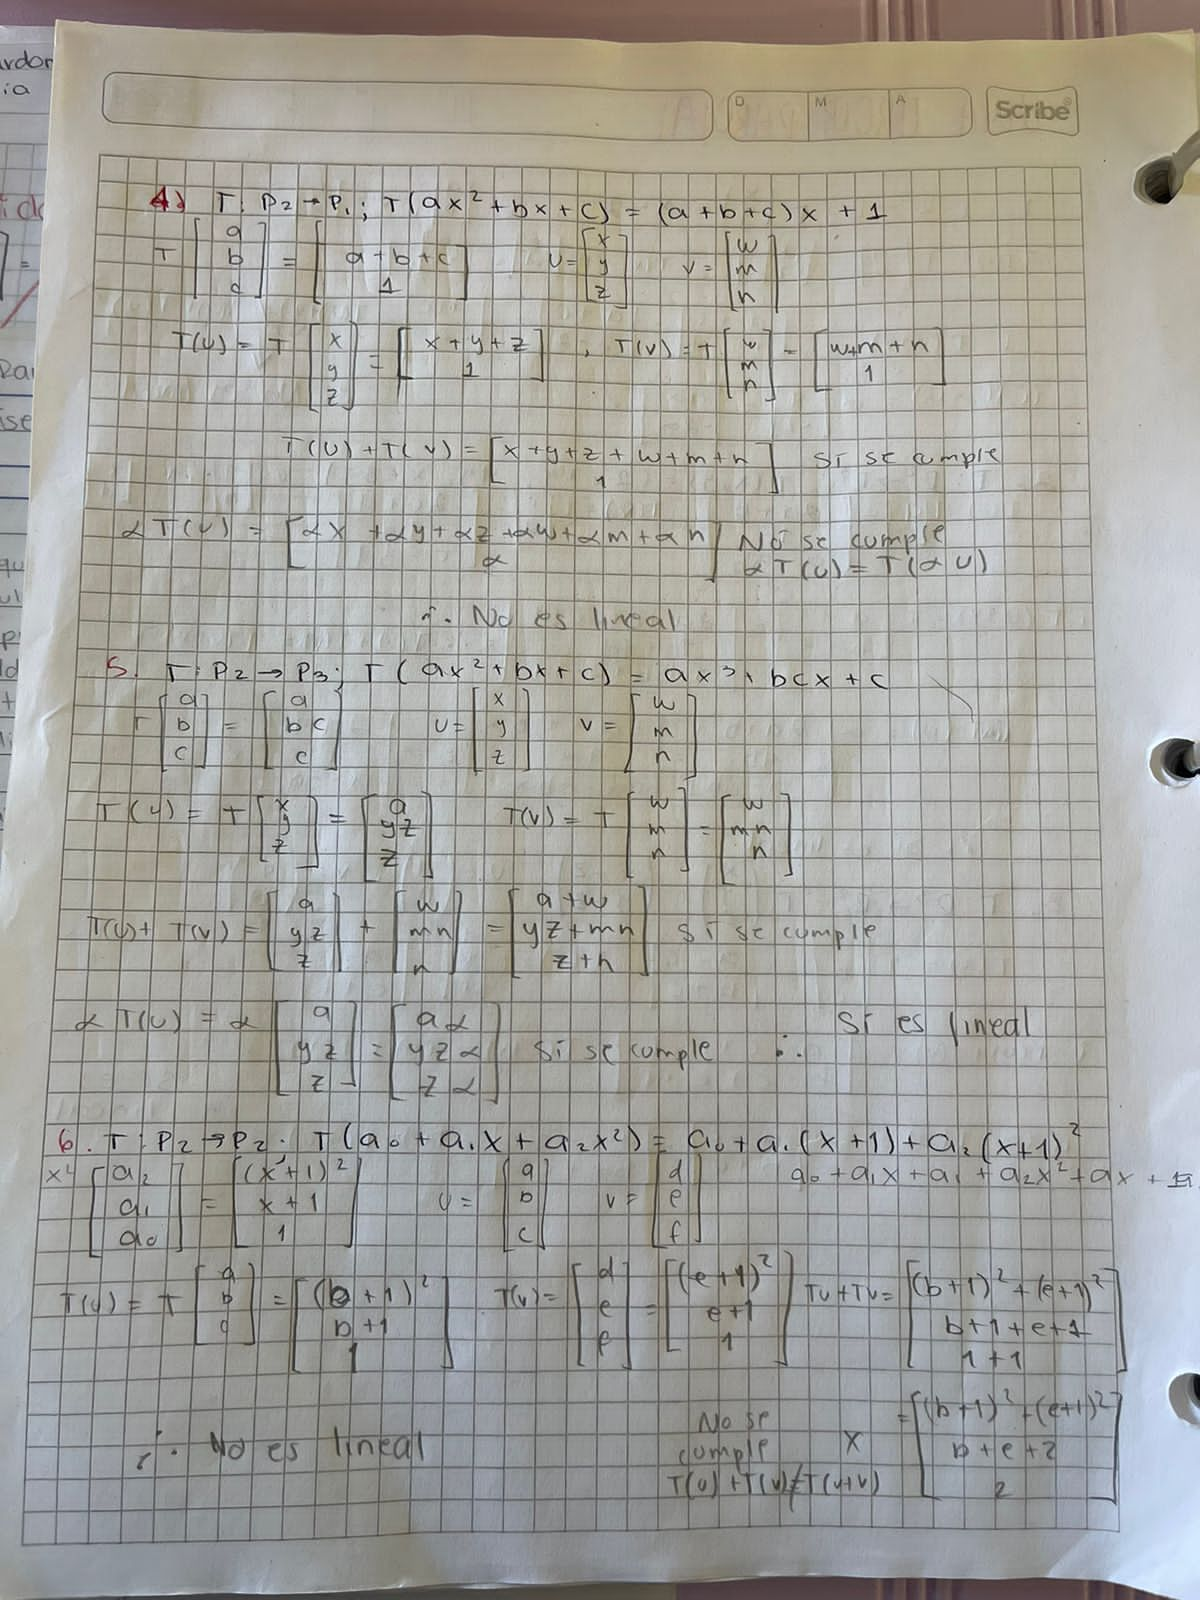 D M A Scribe
4) T: P₂ → P₁; T(ax² + bx + c) = (a+b+c)x + 1
T [a b c] = [a+b+c 1] U = [x y z] V = [w m n]
T(U) = T [x y z] = [x+y+z 1], T(V) = T [w m n] = [w+m+n 1]
T(U) + T(V) = [x+y+z+w+m+n 1] Sí se cumple
αT(U) = [αx + αy + αz + αw + αm + αn α] No se cumple
αT(U) = T(αU)
∴ No es lineal
5. T: P₂ → P₃; T(ax² + bx + c) = ax³ + bcx + c
T [a b c] = [a bc c] U = [x y z] V = [w m n]
T(U) = T [x y z] = [a yz z] T(V) = T [w m n] = [w mn n]
T(U) + T(V) = [a yz z] + [w mn n] = [a+w yz+mn z+n] Sí se cumple
αT(U) = α [a yz z] = [aα yzα zα] Sí se cumple ∴ Sí es lineal
6. T: P₂ → P₂. T(a₀ + a₁x + a₂x²) = a₀ + a₁(x+1) + a₂(x+1)²
[a₂ a₁ a₀] = [(x+1)² x+1 1] U = [a b c] V = [d e f] a₀ + a₁x + a₁ + a₂x² + ax +
T(U) = T [a b c] = [(b+1)² b+1 1] T(V) = [d e f] = [(e+1)² e+1 1] TU + TV = [(b+1)² + (e+1)² b+1+e+1 1+1]
= [(b+1)² + (e+1)² b+e+2 2]
No se
cumple X
T(U) + T(V) ≠ T(U+V)
∴ No es lineal